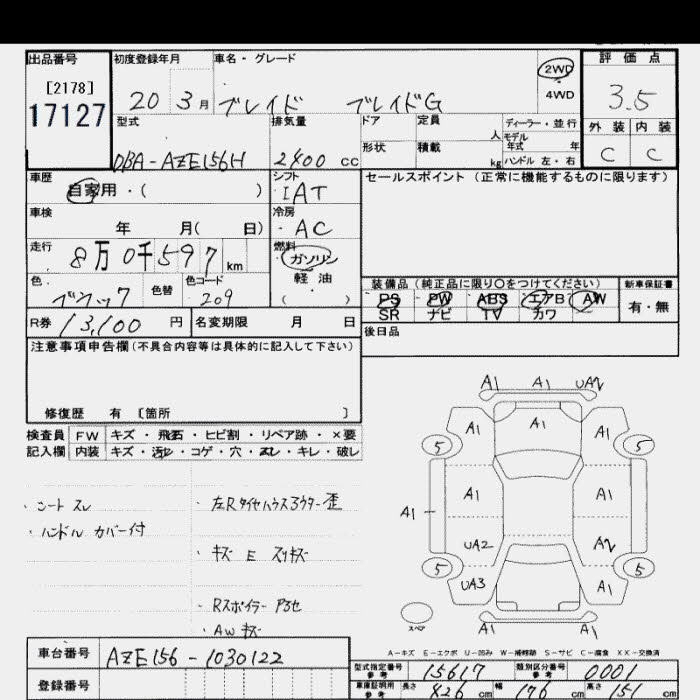 出品番号 初度登録年月 車名・グレード 2WD 評価点
[2178] 4WD
17127 20 3月 ブレイド ブレイドG 3.5
型式 排気量 ドア 定員 人 ディーラー・並行 外装 内装
モデル年式 年
DBA-AZE156H 2400 cc 形状 積載 kg ハンドル 左・右 C C
車歴 シフト セールスポイント (正常に機能するものに限ります)
自家用・( ) IAT
車検 冷房
年 月( 日) AC
走行 燃料
8万0千597 km ガソリン
軽油
色 色替 色コード ( ) 装備品(純正品に限り○をつけてください) 新車保証書
ブラック 209 PS PW ABS エアB AW 有・無
SR ナビ TV カワ
R券 13,100円 名変期限 月 日 後日品
注意事項申告欄(不具合内容等は具体的に記入して下さい)
修復歴 有 〔箇所 〕
検査員 FW キズ・飛石・ヒビ割・リペア跡・×要
記入欄 内装 キズ・汚レ・コゲ・穴・スレ・キレ・破レ
・シート スレ
・ハンドル カバー付
・左Rタイヤハウスアウター歪
・キズ E スリキズ
・Rスポイラー アラセ
・AW キズ
A1 A1 UA2
A1 A1 A1
5 5
A1 A1 A1
UA2 A2
5 5
UA3 A1
スペア A1 A1
A-キズ E-エクボ U-凹み W-補修跡 S-サビ C-腐食 XX-交換済
車台番号 AZE156-1030122
登録番号
型式指定番号 参考 15617 類別区分番号 参考 0001
車庫証明用 参考 長さ 426 cm 幅 176 cm 高さ 151 cm